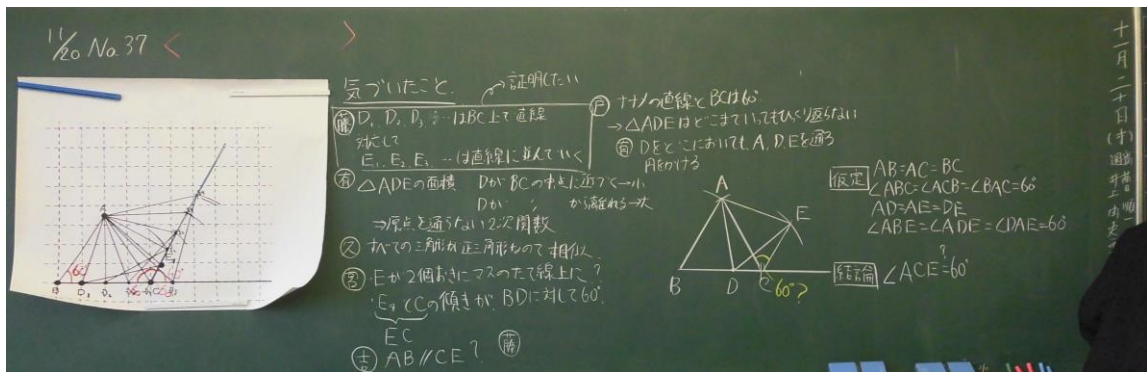 11/20 No.37 < >
気づいたこと
証明したい
藤 D₁, D₂, D₃, … はBC上で直線
対応して
E₁, E₂, E₃, … は直線に並んでいく
有 △ADEの面積 DがBCの中点に近づく→小
Dが 〃 から離れる→大
⇒原点を通らない2次関数
ス すべての三角形が正三角形なので相似
Eが2個おきにマスのたて線上に?
EとCの傾きがBDに対して60°
EC
吉 AB//CE? 藤
戸 ナナメの直線とBCは60°
→△ADEはどこまでいってもひっくり返らない
Dをどこにおいても、A, D, Eを通る
円をかける
A
E
B D C 60°?
仮定 AB=AC=BC
∠ABC=∠ACB=∠BAC=60°
AD=AE=DE
∠ABE=∠ADE=∠DAE=60°
結論 ∠ACE=60°
?
十一月二十日(水)